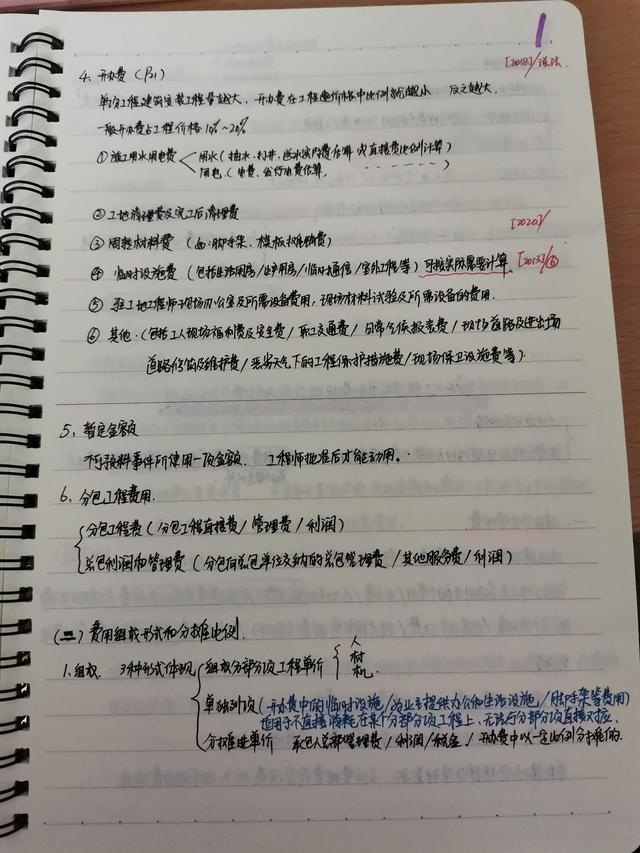 1
4. 开办费 (P21) [2018]/
单项工程建筑安装工程量越大，开办费在工程造价格中比例就越小 反之越大.
一般开办费占工程价格10%~20%
①施工用水用电费 用水(抽水.打井.送水实内费估算 或直接费比例计算)
用电.(电费.
②工地清理费及完工后清理费 [2020]/
③周转材料费 (如:脚手架、模板摊销费)
④ 临时设施费 (包括生活用房/生产用房/临时通信/室外工程等)可按实际需要计算 [2013]/⑥
⑤ 驻工地工程师现场办公室及所需设备费用.现场材料试验及所需设备的费用.
⑥ 其他.(包括工人现场福利费及安全费/职工交通费/日常气候报表费/现场道路及进出场
道路修筑及维护费/恶劣天气下的工程保护措施费/现场保卫设施费等).
5、暂定金额
不可预料事件所使用一项金额. 工程师批准后才能动用。
6.分包工程费用.
分包工程费(分包工程直接费/管理费/利润)
总包利润和管理费 (分包向总包单位交纳的总包管理费/其他服务费/利润)
(二)费用组成形式和分摊比例.
1.组成. 3种形式体现 组成分部分项工程单价 人 材 机.
单独列项(开办费中的临时设施/为业主提供办公和生活设施/脚手架等费用)
适用于不直接消耗在某个分部分项工程上、无法与分部分项直接对应.
分摊进单价 承包人总部管理费/利润/税金/开办费中以一定比例分摊的.